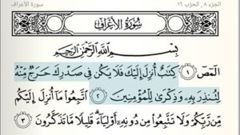 الجزء ٨ , الحزب ١٦
سورة الأعراف
سُورَةُ الأَعْرَافِ
بِسْمِ اللَّهِ الرَّحْمَٰنِ الرَّحِيمِ
الٓمٓصٓ ۝١ كِتَٰبٌ أُنزِلَ إِلَيْكَ فَلَا يَكُن فِى صَدْرِكَ حَرَجٌ مِّنْهُ
لِتُنذِرَ بِهِۦ وَذِكْرَىٰ لِلْمُؤْمِنِينَ ۝٢ ٱتَّبِعُوا۟ مَآ أُنزِلَ إِلَيْكُم
مِّن رَّبِّكُمْ وَلَا تَتَّبِعُوا۟ مِن دُونِهِۦٓ أَوْلِيَآءَ قَلِيلًا مَّا تَذَكَّرُونَ ۝٣